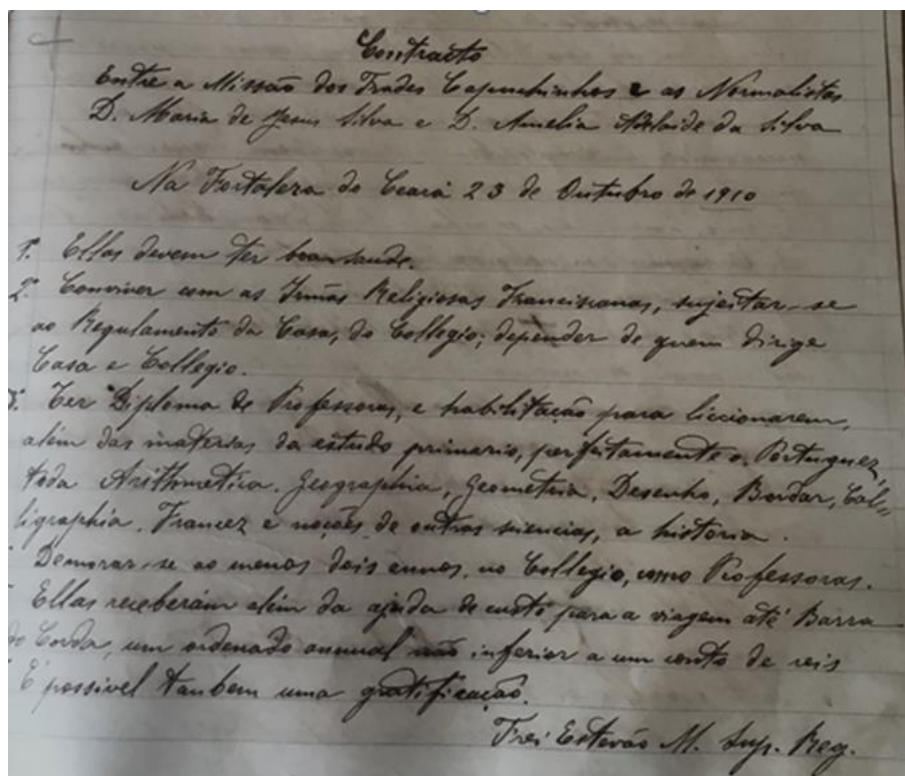 Contracto
Entre a Missão dos Frades Capuchinhos e as Normalistas
D. Maria de Jesus Silva e D. Amelia Adelaide da Silva
Na Fortaleza do Ceará 23 de Outubro de 1910
1º. Ellas devem ter boa saude.
2º. Conviver com as Irmãs Religiosas Franciscanas, sujeitar-se
ao Regulamento da Casa, do Collegio; depender de quem dirige
Casa e Collegio.
3º. Ter Diploma de Professoras, e habilitação para liccionarem,
além das materias do estudo primario, perfeitamente o Portuguez,
toda Arithmetica, Geographia, Geometria, Desenho, Bordar, Cal-
ligraphia, Francez e noções de outras siencias, a historia.
Demorar-se ao menos dois annos, no Collegio, como Professoras.
Ellas receberám além da ajuda de custo para a viagem até Barra
do Corda, um ordenado annual não inferior a um conto de reis
É possivel tambem uma gratificação.
Frei Estevão M. Sup. Reg.